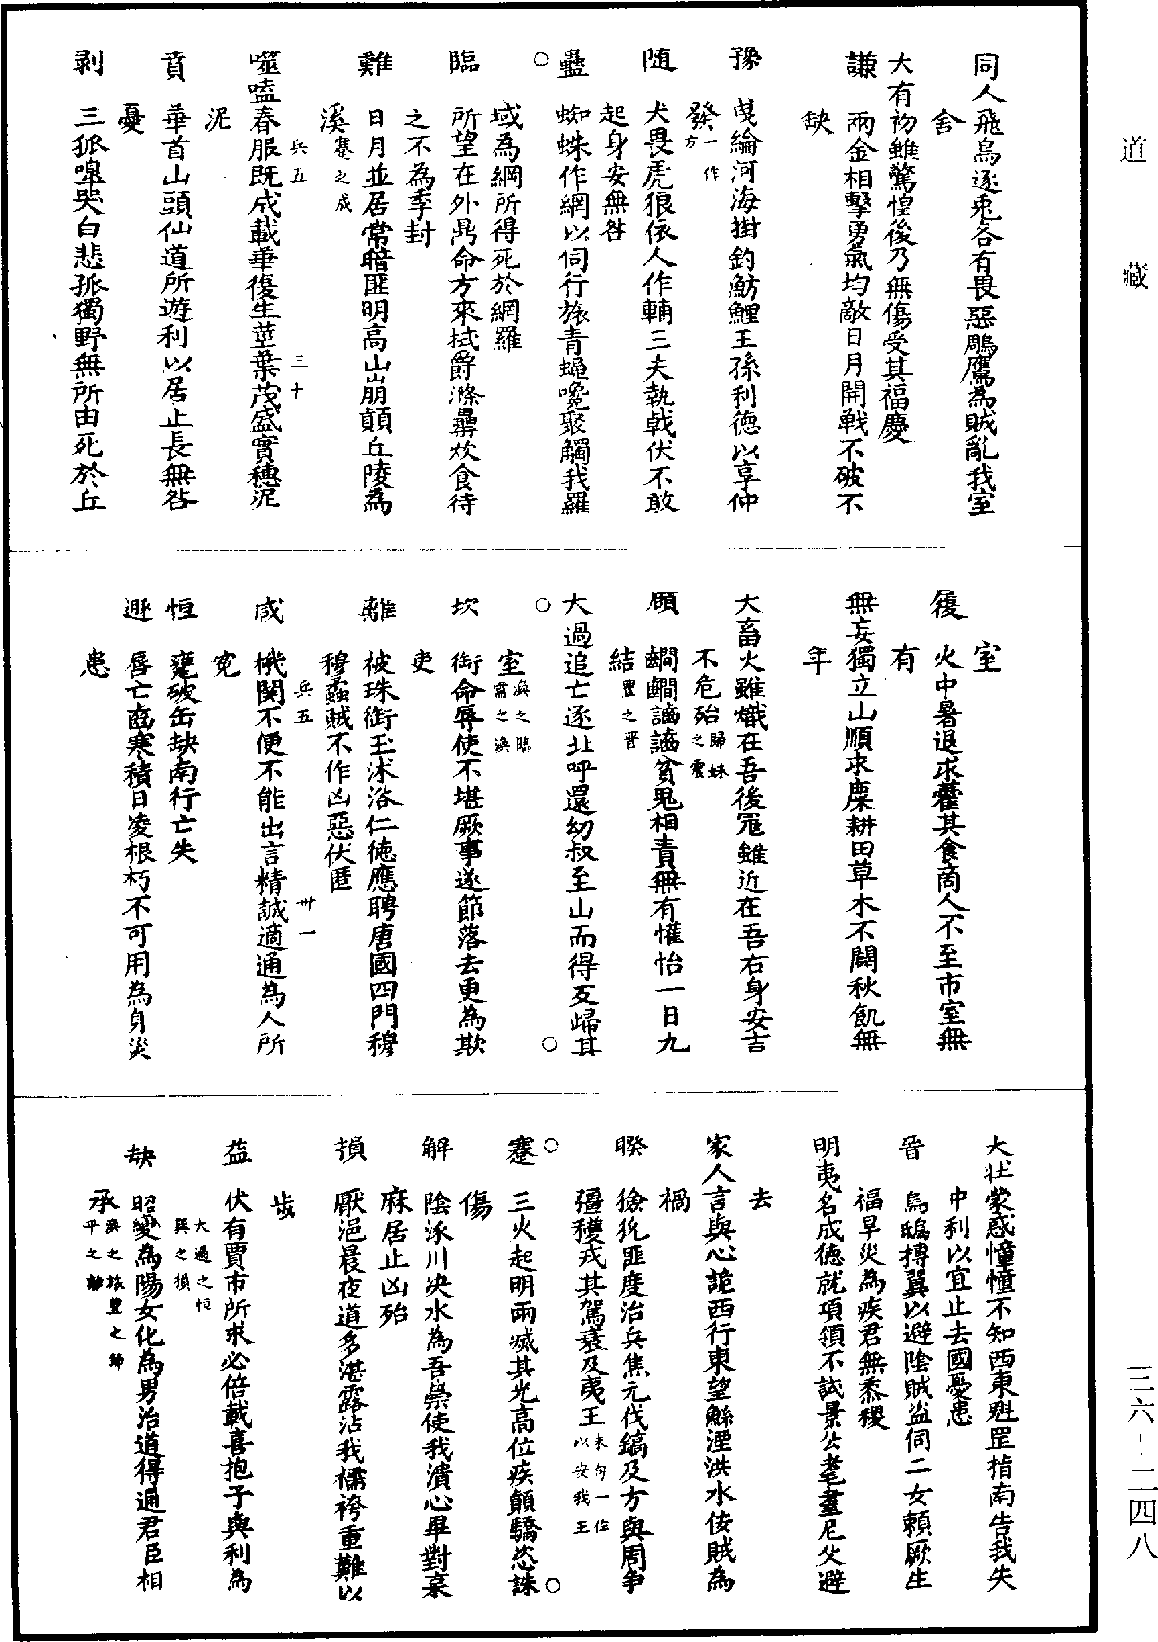 同人飛烏逐兎各有畏惡鵰鷹為賊亂我室
舍
大有初雖驚惶後乃無傷受其福慶
謙　兩金相擊勇氣均敵日月開戰不破不
缺
豫　曵綸河海掛釣魴鯉王孫利德以享仲
發一作方
随　犬畏虎狼依人作輔三夫執戟伏不敢
起身安無咎
蠱　蜘蛛作網以伺行旅青蠅嚵聚觸我羅
域為網所得死於網羅
臨　所望在外鼎命方來拭爵滌罍炊食待
之不為季封
難　日月並居常暗匪明高山崩顛丘陵為
溪蹇之咸
兵五　三十
噬嗑春服既成載華復生莖葉茂盛實穗泥
泥
賁　華首山頭仙道所遊利以居止長無咎
憂
剥　三狐嘷哭白悲孤獨野無所由死於丘
室
復　火中暑退求藿其食商人不至市室無
有
無妄獨立山顛求麋耕田草木不闢秋飢無
年
大畜火雖熾在吾後冦雖近在吾右身安吉
不危殆歸妹之震
頤　齰齰謫謫貧鬼相責無有懽怡一日九
結豐之晉
大過追亡逐北呼還幼叔至山而得反歸其
室渙之臨需之渙
坎　銜命辱使不堪厥事遂節落去更為欺
吏
離　被珠銜玉沭浴仁徳應聘唐國四門穆
穆蝨賊不作凶惡伏匿
兵五　卅一
咸　機関不便不能出言精誠適通為人所
寃
恒　甕破缶缺南行亡失
遯　脣亡齒寒積日凌根朽不可用為身災
患
大壯蒙惑憧憧不知西東魁罡指南告我失
中利以宜止去國憂患
晉　烏鵙搏翼以避陰賊盗伺二女賴厥生
福旱災為疾君無黍稷
明夷名成德就項領不試景公耄羣尼父避
去
家人言與心詭西行東望鯀湮洪水佞賊為
禍
睽　獫狁匪度治兵焦元伐鎬及方與周争
彊穫戎其駕衰及夷王末句一作以安我王
蹇　三火起明雨滅其光高位疾顛驕恣誅
傷
解　陰涿川决水為吾祟使我潰心畢對裒
麻居止凶殆
損　厭浥晨夜道多湛露沾我襦袴重難以
歩
益　伏有賈市所求必倍載喜抱子與利為
大過之恒巽之損
缺　昭變為陽女化為男治道得通君臣相
承渙之旅豐之歸平之離
道藏
三六-二四八